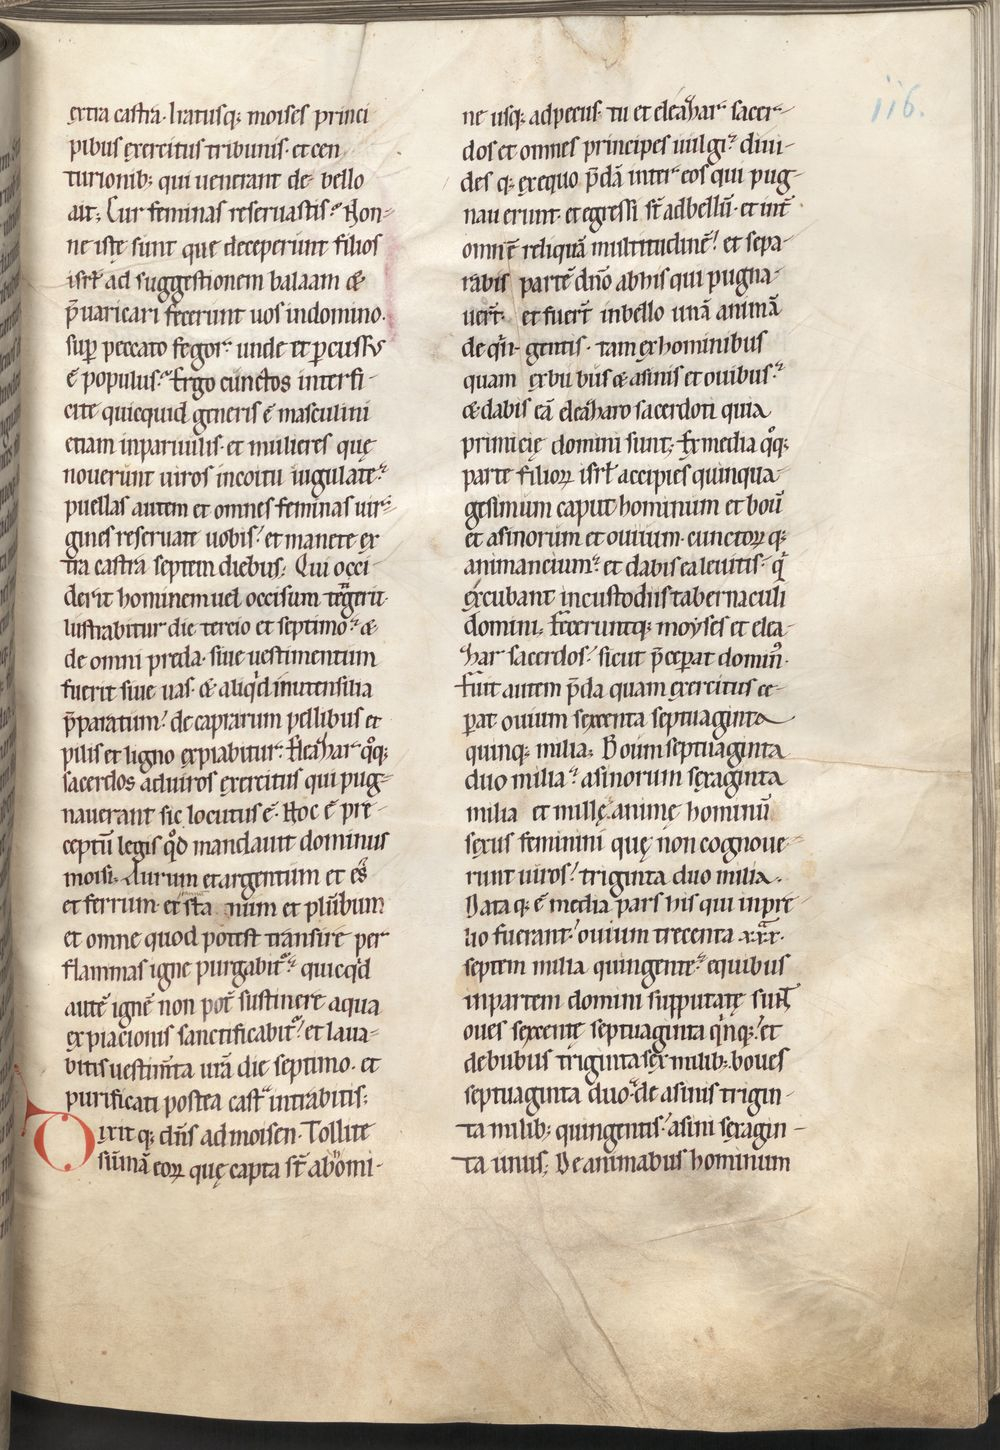 116.
extra castra. Iratusq; moises princi
pibus exercitus tribunis. et cen
turionib; qui uenerant de bello
ait; Cur feminas reseruastis? Non-
ne istę sunt que deceperunt filios
isrł ad suggestionem balaam &
p̄uaricari fecerunt uos indomino.
sup peccato fegor. unde et ꝑcussus
ē populus? Ergo cunctos interfi-
cite quicquid generis ē masculini
etiam inparuulis. et mulieres quę
nouerunt uiros incoitu iugulate.
puellas autem et omnes feminas uir-
gines reseruate uobis. et manete ex
tra castra septem diebus; Qui occi-
derit hominem uel occisum tetigerit.
lustrabitur die tercio et septimo. &
de omni preda. siue uestimentum
fuerit siue uas. & aliqͥd inutensilia
p̄paratum. de caprarum pellibus et
pilis et ligno expiabitur. Eleazar qͦq;
sacerdos aduiros exercitus qui pug-
nauerant sic locutus ē. Hoc ē pre-
ceptū legis qͦd mandauit dominus
moisi. Aurum et argentum et ęs
et ferrum. et sta num et plūbum
et omne quod potest transire per
flammas igne purgabitͬ. quicqͥd
autē ignē non pot̄ sustinere aqua
expiacionis sanctificabitͬ. et laua-
bitis uestim̄ta ur̄a die septimo. et
purificati postea castͣ intrabitis;
Dixit q; dn̄s ad moisen. Tollite
sūmā eoꝝ quę capta st̄ abhomi-
ne usq; adpecus. tu et eleazar sacer-
dos et omnes principes uulgi. diui-
desq; exequo p̄dā inter eos qui pug-
nauerunt. et egressi st̄ adbellū. et int̄
omnē reliquā multitudinē. et sepa-
rabis partē dn̄o abhis qui pugna-
uer̄t. et fuer̄t inbello unā animā
de qͥn-gentis. tam exhominibus
quam exbubus & asinis et ouibus.
& dabis eā eleazaro sacerdoti quia
primicię domini sunt; Ex media qͦq;
parte filioꝝ isrł accipies quinqua-
gesimum caput hominum et boū
et asinorum et ouium. cunctoꝝ q;
animancium. et dabis ea leuitis. qͥ
excubant incustodiis tabernaculi
domini. Feceruntq; moyses et elea-
zar sacerdos. sicut p̄ceꝑat domin̄.
Fuit autem p̄da quam exercitus ce-
ꝑat ouium sexcenta septuaginta
quinq; milia; Boum septuaginta
duo milia. asinorum sexaginta
milia et mille. animę hominū
sexus feminini quę non cognoue-
runt uiros. triginta duo milia.
Data q; ē media pars his qui inpre
lio fuerant. ouium trecenta xxx.
septem milia quingente. equibus
inpartem domini supputatę sunt
oues sexcentę septuaginta qͥnq;. et
de bubus triginta sex milib;. boues
septuaginta duo. de asinis trigin-
ta milib; quingentis. asini sexagin-
ta unus; De animabus hominum